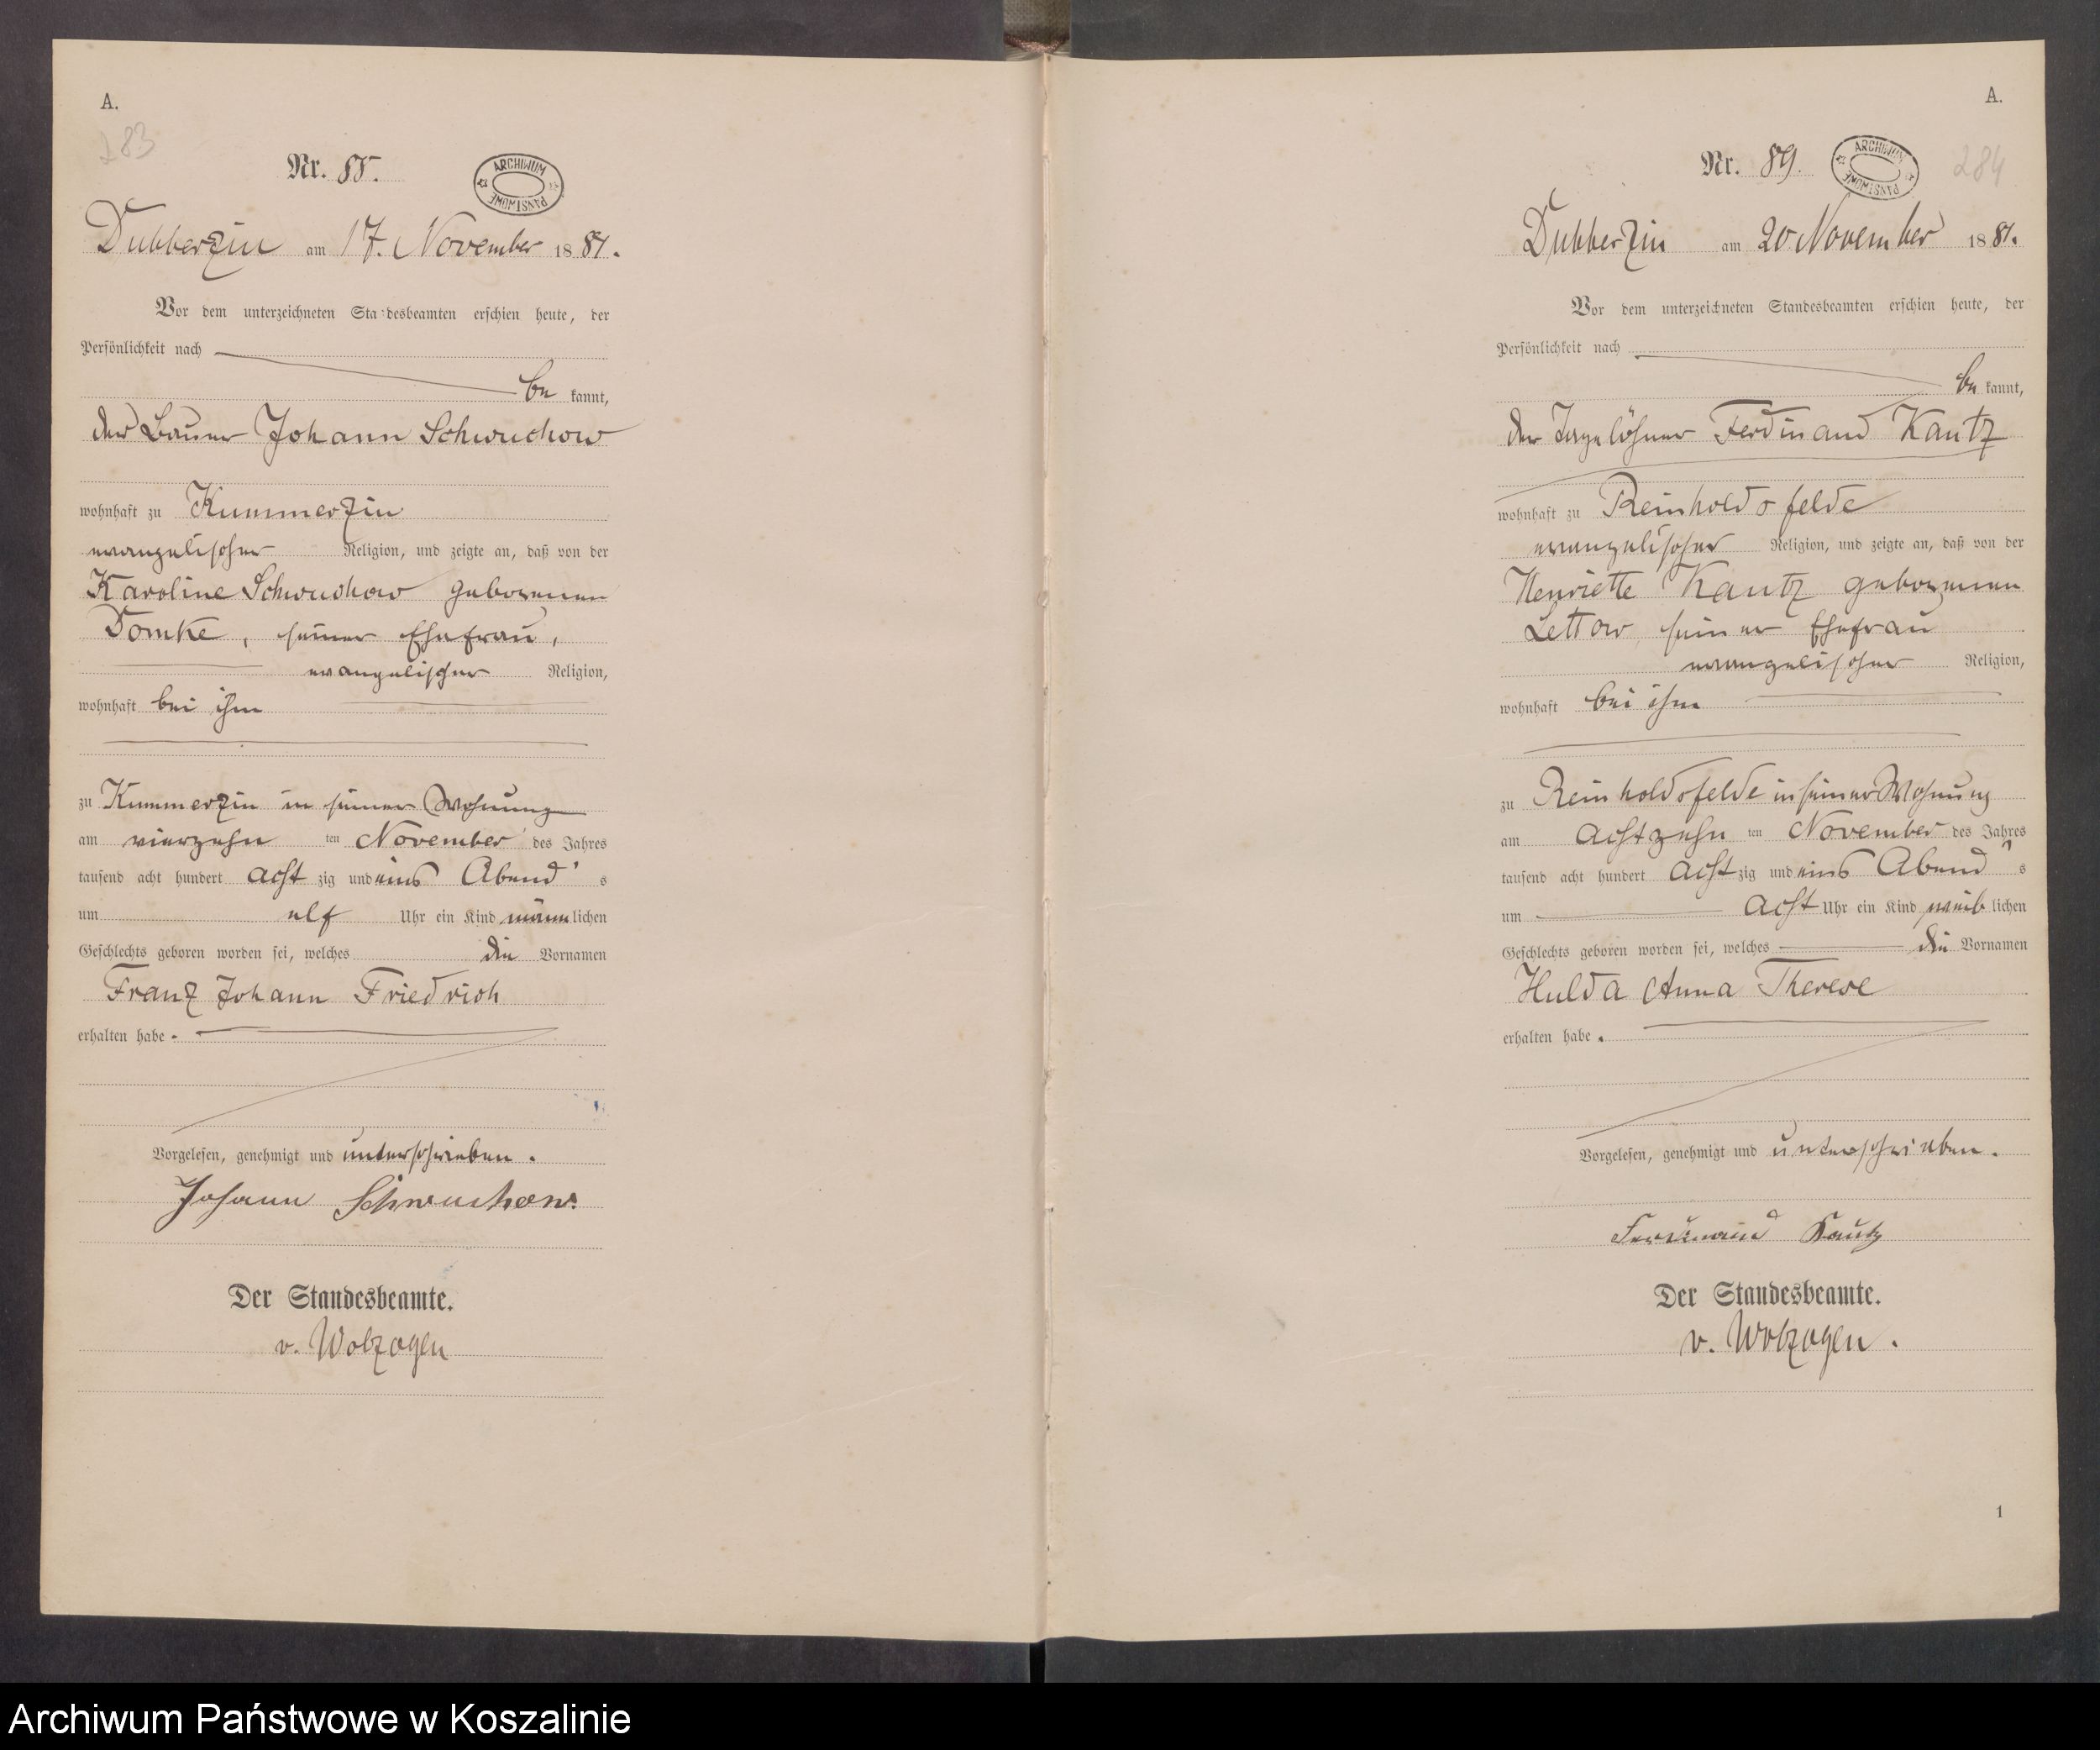 A.
283
Nr. 88.
ARCHIWUM PAŃSTWOWE
Dubberzin am 17. November 1881.
Vor dem unterzeichneten Standesbeamten erschien heute, der
Persönlichkeit nach
be kannt,
der Bauer Johann Schwuchow
wohnhaft zu Kummerzin
evangelischer Religion, und zeigte an, daß von der
Karoline Schwuchow geborenen
Domke, seiner Ehefrau,
evangelischer Religion,
wohnhaft bei ihm
zu Kummerzin in seiner Wohnung
am vierzehn ten November des Jahres
tausend acht hundert acht zig und eins Abend's
um elf Uhr ein Kind männlichen
Geschlechts geboren worden sei, welches die Vornamen
Franz Johann Friedrich
erhalten habe.
Vorgelesen, genehmigt und unterschrieben.
Johann Schwuchow.
Der Standesbeamte.
v. Wolzogen
A.
284
Nr. 89.
ARCHIWUM PAŃSTWOWE
Dubberzin am 20 November 1881.
Vor dem unterzeichneten Standesbeamten erschien heute, der
Persönlichkeit nach
be kannt,
der Tagelöhner Ferdinand Kautz
wohnhaft zu Reinholdsfelde
evangelischer Religion, und zeigte an, daß von der
Henriette Kautz geborenen
Lettow seiner Ehefrau
evangelischer Religion,
wohnhaft bei ihm
zu Reinholdsfelde in seiner Wohnung
am achtzehn ten November des Jahres
tausend acht hundert acht zig und eins Abend's
um acht Uhr ein Kind weiblichen
Geschlechts geboren worden sei, welches die Vornamen
Hulda Anna Therese
erhalten habe.
Vorgelesen, genehmigt und unterschrieben.
Ferdinand Kautz
Der Standesbeamte.
v. Wolzogen.
1
Archiwum Państwowe w Koszalinie